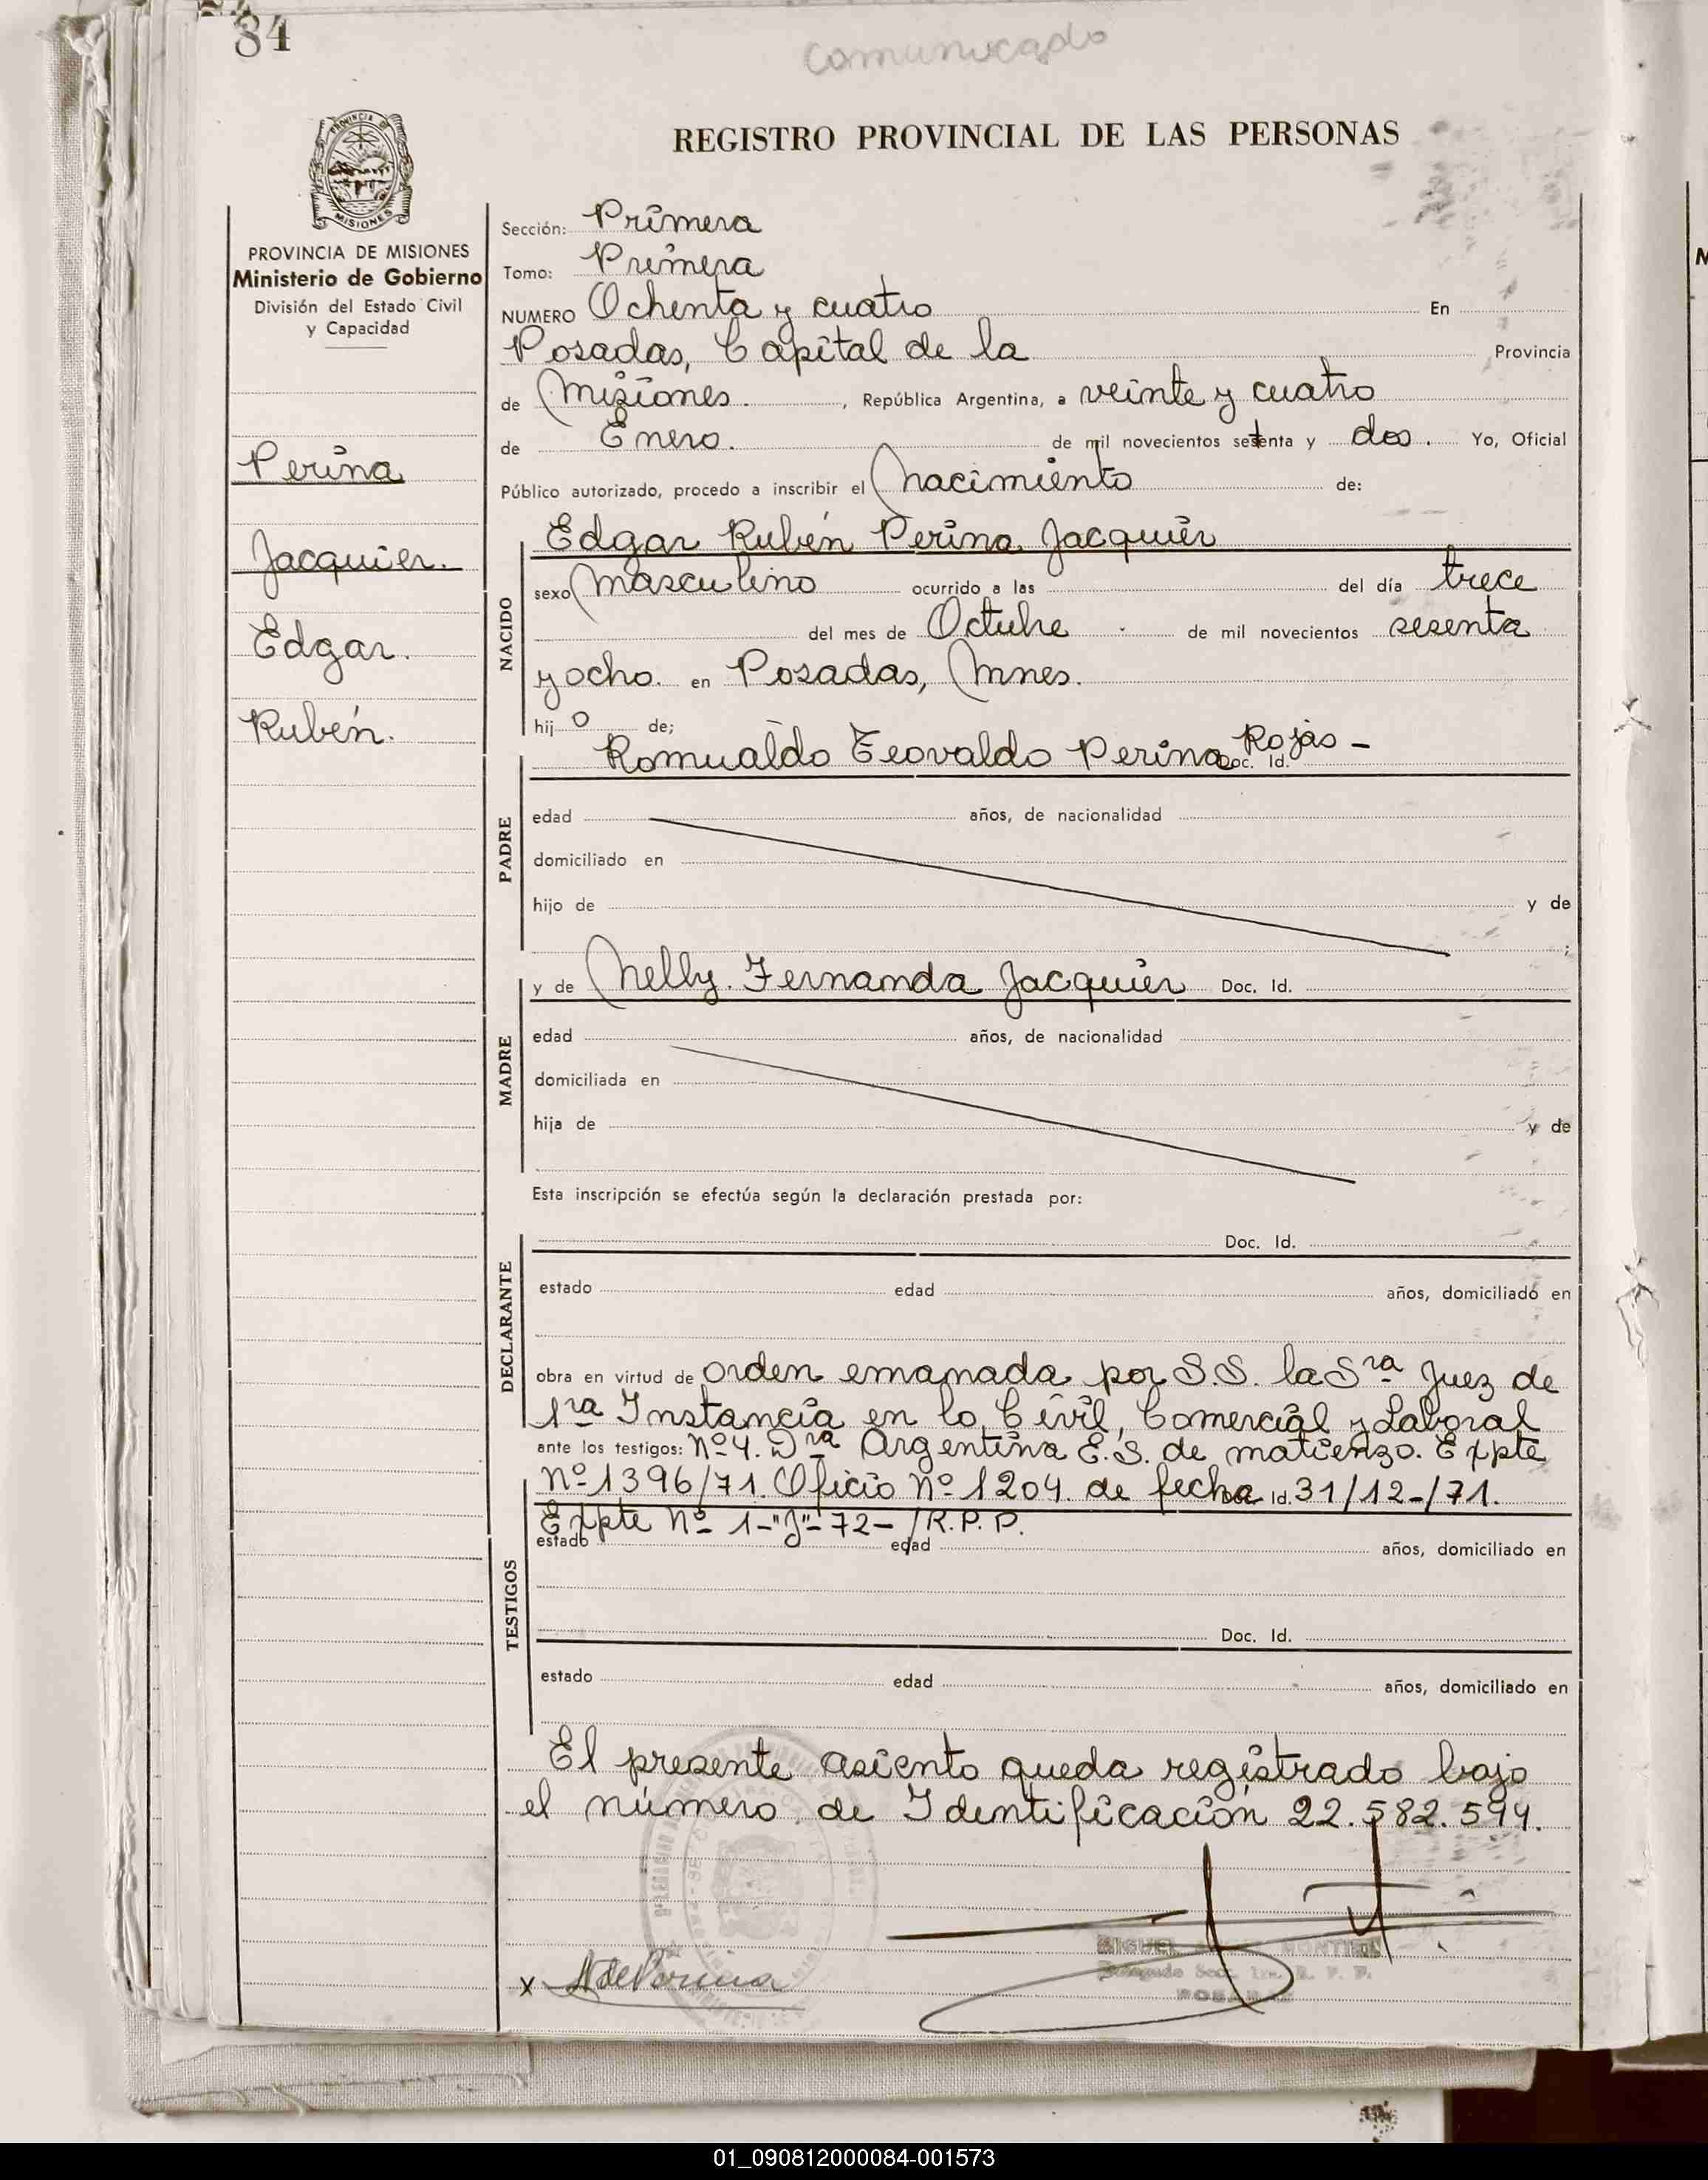 84
comunicado
PROVINCIA DE
MISIONES
REGISTRO PROVINCIAL DE LAS PERSONAS
PROVINCIA DE MISIONES
Ministerio de Gobierno
División del Estado Civil
y Capacidad
Perina
Jacquier.
Edgar.
Rubén.
Sección: Primera
Tomo: Primera
NUMERO Ochenta y cuatro En
Posadas, Capital de la Provincia
de Misiones. , República Argentina, a veinte y cuatro
de Enero. de mil novecientos setenta y dos. Yo, Oficial
Público autorizado, procedo a inscribir el Nacimiento de:
NACIDO
Edgar Rubén Perina Jacquier
sexo Masculino ocurrido a las del día trece
del mes de Octubre de mil novecientos sesenta
y ocho. en Posadas, Mnes.
hij o de;
PADRE
Romualdo Teovaldo Perina Rojas - Doc. Id.
edad años, de nacionalidad
domiciliado en
hijo de y de
;
MADRE
y de Nelly. Fernanda Jacquier Doc. Id.
edad años, de nacionalidad
domiciliada en
hija de y de
Esta inscripción se efectúa según la declaración prestada por:
DECLARANTE
Doc. Id.
estado edad años, domiciliado en
obra en virtud de orden emanada por S.S. la Sra Juez de
1ra Instancia en lo Civil, Comercial y Laboral
ante los testigos: Nº 4. Dra Argentina E.S. de Matienzo. Expte
Nº 1396/71. Oficio Nº 1204. de fecha Doc. Id. 31/12-/71.
Expte Nº 1-"J"-72-/R.P.P.
TESTIGOS
estado edad años, domiciliado en
Doc. Id.
estado edad años, domiciliado en
El presente asiento queda registrado bajo
el número de Identificación 22.582.594.
x N de Perina
MIGUEL MONTIEL
Delegado Secc. 1ra. R. P. P.
POSADAS
01_090812000084-001573